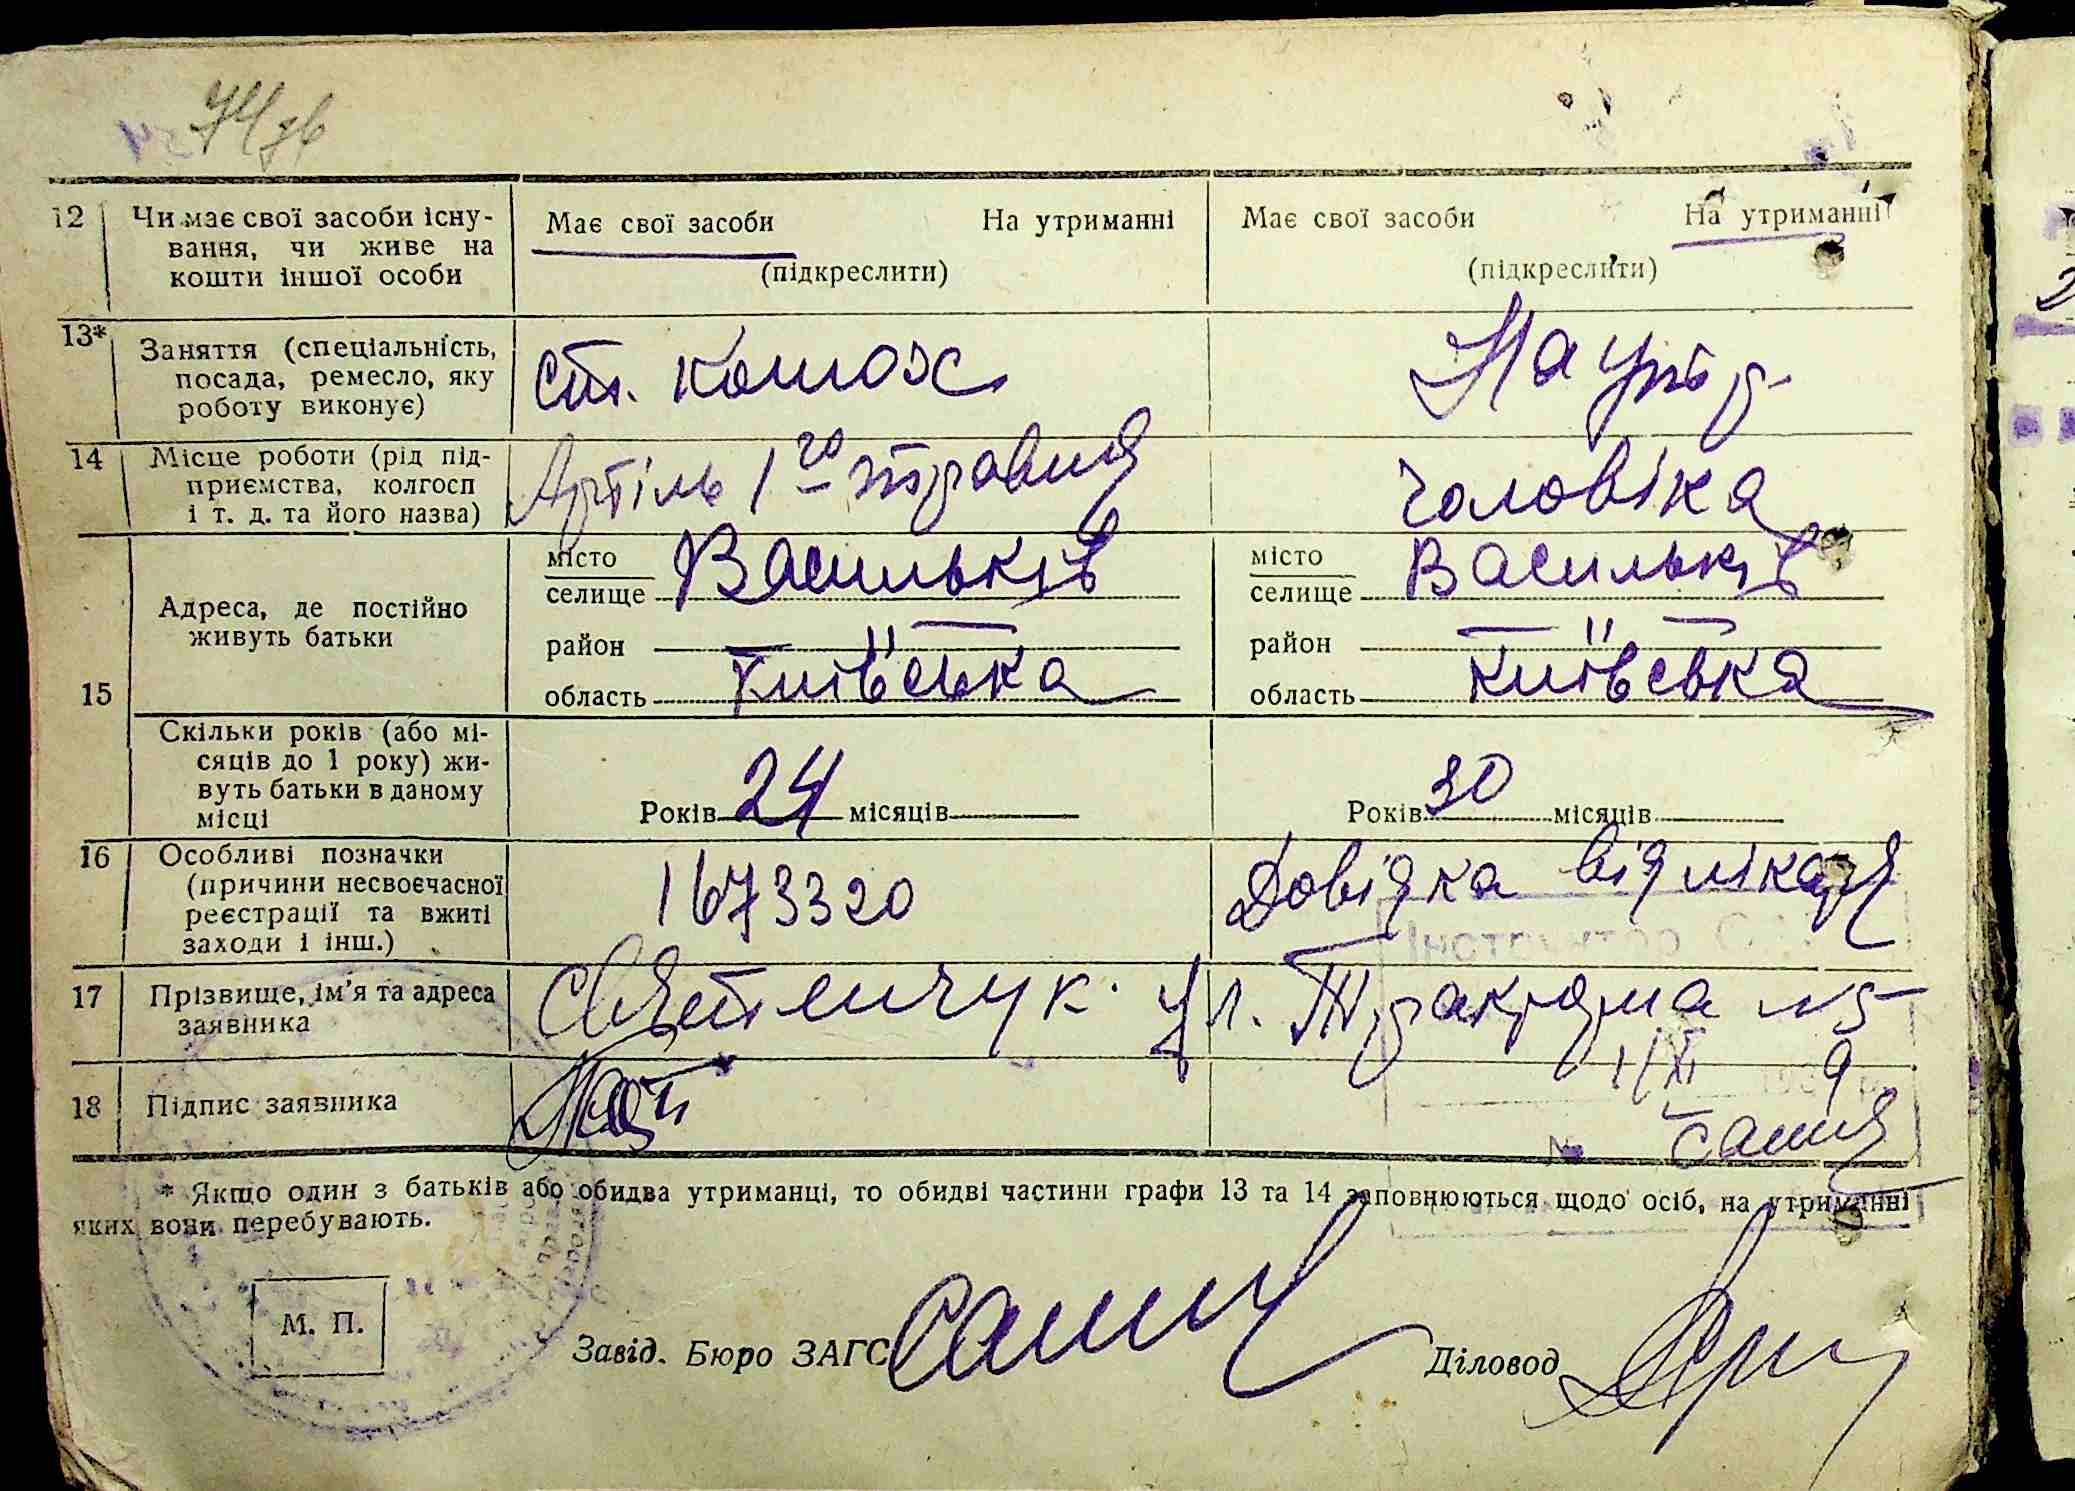 12 Чи має свої засоби існу- Має свої засоби На утриманні Має свої засоби На утриманні
вання, чи живе на (підкреслити) (підкреслити)
кошти іншої особи
13* Заняття (спеціальність, ст.
посада, ремесло, яку
роботу виконує)
14 Місце роботи (рід під- Артіль 1го травня чоловіка
приємства, колгосп
і т. д. та його назва)
місто Васильків місто Васильків
селище селище
Адреса, де постійно
живуть батьки
район район
15 область Київська область Київська
Скільки років (або мі-
сяців до 1 року) жи-
вуть батьки в даному
місці Років 24 місяців Років 30 місяців
16 Особливі позначки 1673320 Довідка від лікаря
(причини несвоєчасної
реєстрації та вжиті
заходи і інш.)
Інструктор
17 Прізвище, ім’я та адреса ул. №5
заявника
1/XI 9
18 Підпис заявника
№
* Якщо один з батьків або обидва утриманці, то обидві частини графи 13 та 14 заповнюються щодо осіб, на утриманні
яких вони перебувають.
М. П.
Завід. Бюро ЗАГС Діловод